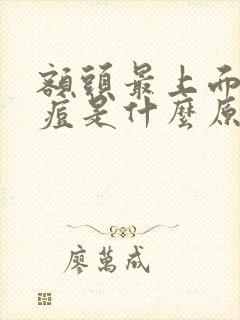 額頭最上面
痘是什麼原
廖萬成